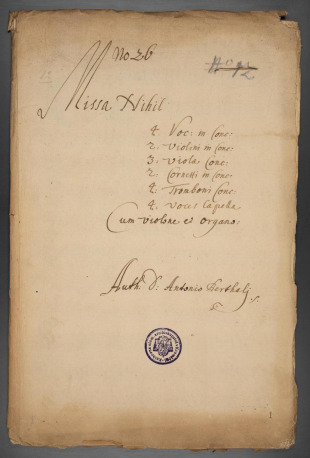 No. 26
No 12
Missa Nihil
4. Voc: in Conc:
2. Violini in Conc:
3. Viola Conc:
2. Cornetti in Conc:
4. Tromboni Conc:
4. voces Capella
Cum violone et Organo:
Auth: D: Antonio Berthali